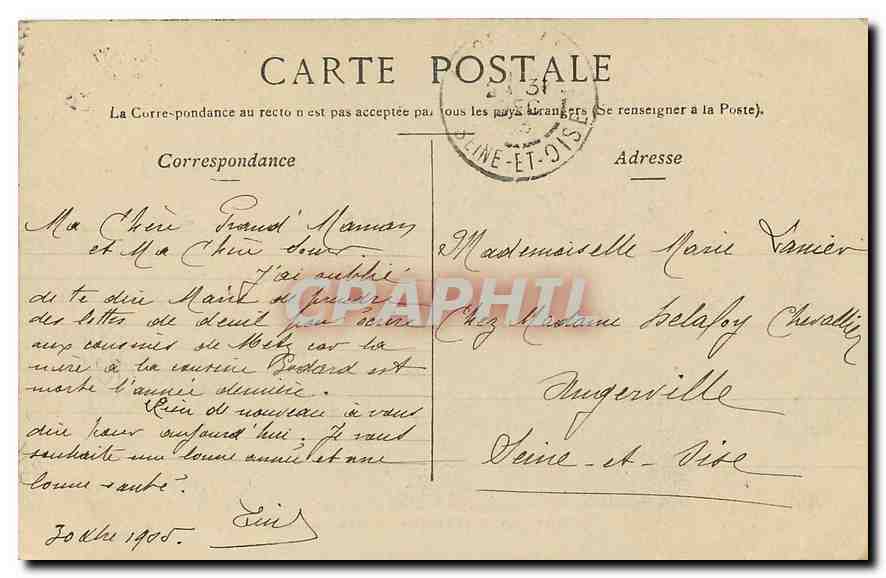 CARTE POSTALE
La Correspondance au recto n'est pas acceptée par tous les pays étrangers (Se renseigner à la Poste).
Correspondance
Ma Chère Grand' Maman
et Ma Chère Sœur.
J'ai oublié
de te dire Marie de prendre
des lettres de deuil pour écrire
aux cousines de Metz car la
mère à la cousine Bodard est
morte l'année dernière.
Rien de nouveau à vous
dire pour aujourd'hui. Je vous
souhaite une bonne année et une
bonne santé.
30 Xbre 1905.
Adresse
Mademoiselle Marie Lanier
Chez Madame Delafoy Chevallier
Angerville
Seine-et-Oise
31
DEC
SEINE-ET-OISE
CPAPHIL